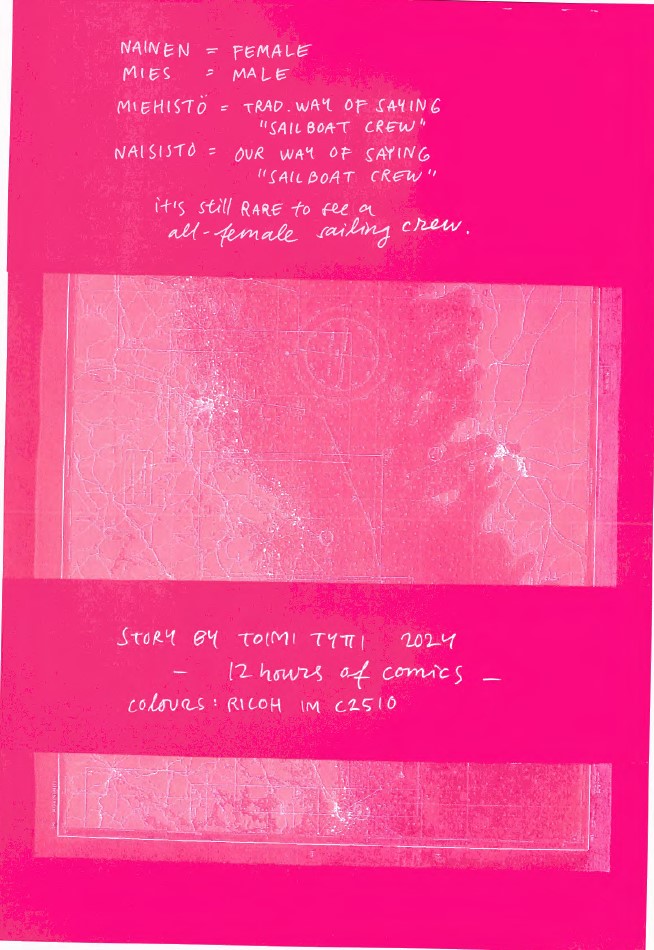 NAINEN = FEMALE
MIES = MALE
MIEHISTÖ = TRAD. WAY OF SAYING
"SAILBOAT CREW"
NAISISTO = OUR WAY OF SAYING
"SAILBOAT CREW"
it's still RARE to see a
all-female sailing crew.
STORY BY TOIMI TYTTI 2024
– 12 hours of comics –
COLOURS: RICOH IM C2510